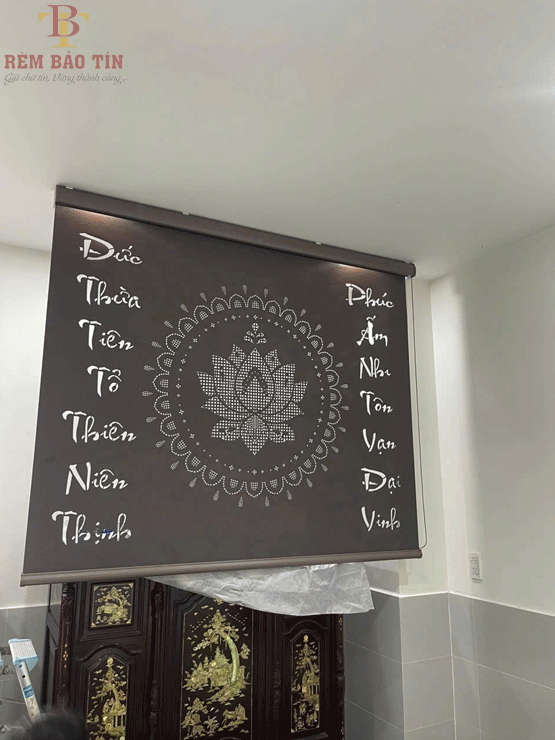 BT
RÈM BẢO TÍN
Giữ chữ tín, Vững thành công
Đức
Thừa
Tiên
Tổ
Thiên
Niên
Thịnh
Phúc
Ấm
Nhi
Tôn
Vạn
Đại
Vinh